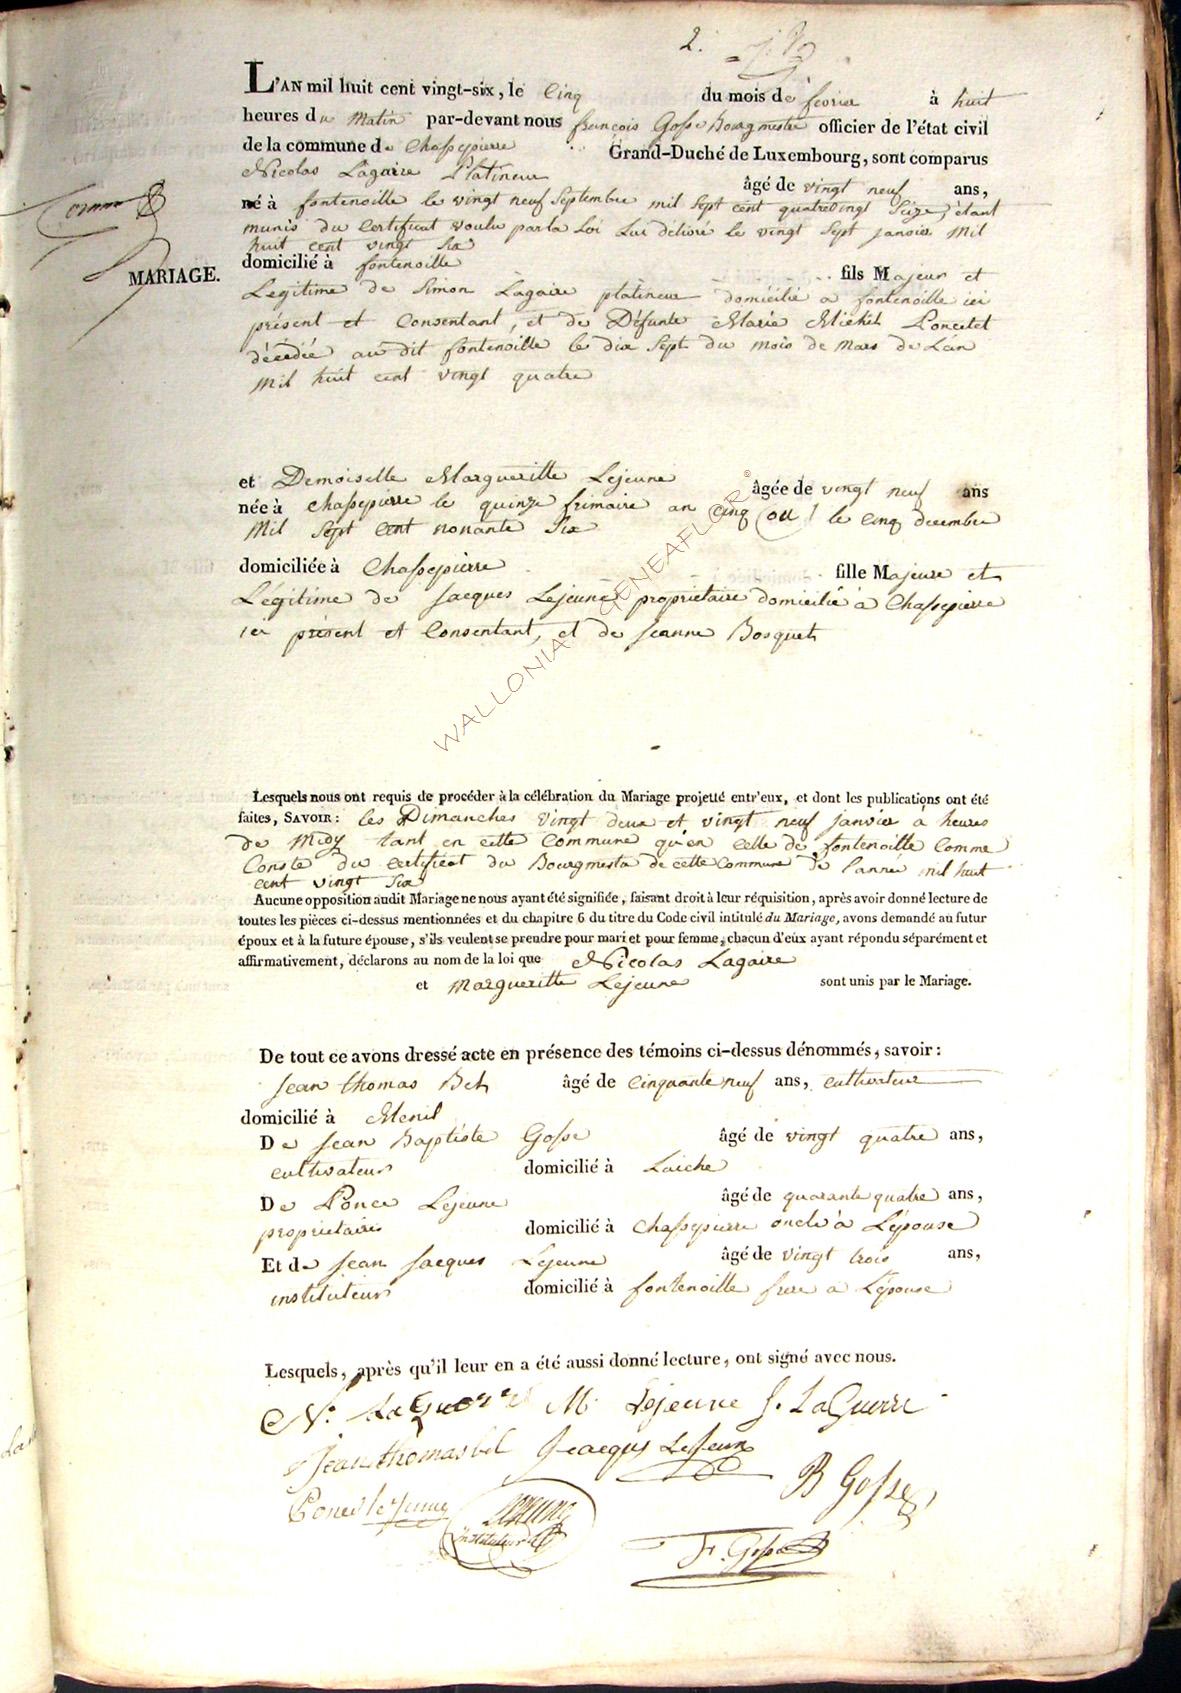 2.
L'AN mil huit cent vingt-six, le Cinq du mois de fevrier à huit
heures du Matin par-devant nous françois Gosse Bourgmestre officier de l'état civil
de la commune de Chassepierre Grand-Duché de Luxembourg, sont comparus
Nicolas Lagaire Platineur âgé de vingt neuf ans,
né à fontenoille le vingt neuf Septembre mil Sept cent quatrevingt Seize, étant
munis du Certificat voulu par la Loi Lui délivré le vingt Sept janvier Mil
huit cent vingt Six
domicilié à fontenoille fils Majeur et
MARIAGE.
Legitime de Simon Lagaire platineur domicilié a fontenoille ici
présent et Consentant, et de Défunte Marie Michel Poncelet
décédée au dit fontenoille le dix Sept du mois de Mars de Lan
Mil huit cent vingt quatre
et Demoiselle Margueritte Lejeune âgée de vingt neuf ans
née à Chassepierre le quinze frimaire an Cinq (ou) le Cinq decembre
Mil Sept Cent nonante Six
domiciliée à Chassepierre fille Majeure et
Légitime de Jacques Lejeune propriétaire domicilié à Chassepierre
ici présent et Consentant, et de Jeanne Bosquet
WALLONIA GENEAFLOR ©
Lesquels nous ont requis de procéder à la célébration du Mariage projetté entr'eux, et dont les publications ont été
faites, SAVOIR : les Dimanches vingt deux et vingt neuf janvier à heures
de Midy tant en cette Commune qu'en Celle de fontenoille Comme
Conste du certificat du Bourgmestre de cette Commune de l'année mil huit
cent vingt Six
Aucune opposition audit Mariage ne nous ayant été signifiée, faisant droit à leur réquisition, après avoir donné lecture de
toutes les pièces ci-dessus mentionnées et du chapitre 6 du titre du Code civil intitulé du Mariage, avons demandé au futur
époux et à la future épouse, s'ils veulent se prendre pour mari et pour femme, chacun d'eux ayant répondu séparément et
affirmativement, déclarons au nom de la loi que Nicolas Lagaire
et Margueritte Lejeune sont unis par le Mariage.
De tout ce avons dressé acte en présence des témoins ci-dessus dénommés, savoir :
Jean thomas Bel âgé de Cinquante neuf ans, cultivateur
domicilié à Menil
De Jean Baptiste Gosse âgé de vingt quatre ans,
cultivateur domicilié à Laiche
De Ponce Lejeune âgé de quarante quatre ans,
propriétaire domicilié à Chassepierre oncle à Lépouse
Et de Jean Jacques Lejeune âgé de vingt trois ans,
instituteur domicilié à fontenoille frere a Lépouse
Lesquels, après qu'il leur en a été aussi donné lecture, ont signé avec nous.
N. LaGuerre M. Lejeune S. LaGuerre
Jean thomas bel J Jacques LeJeune B Gosse
Ponce leJeune Lejeune
instituteur
F. Gosse